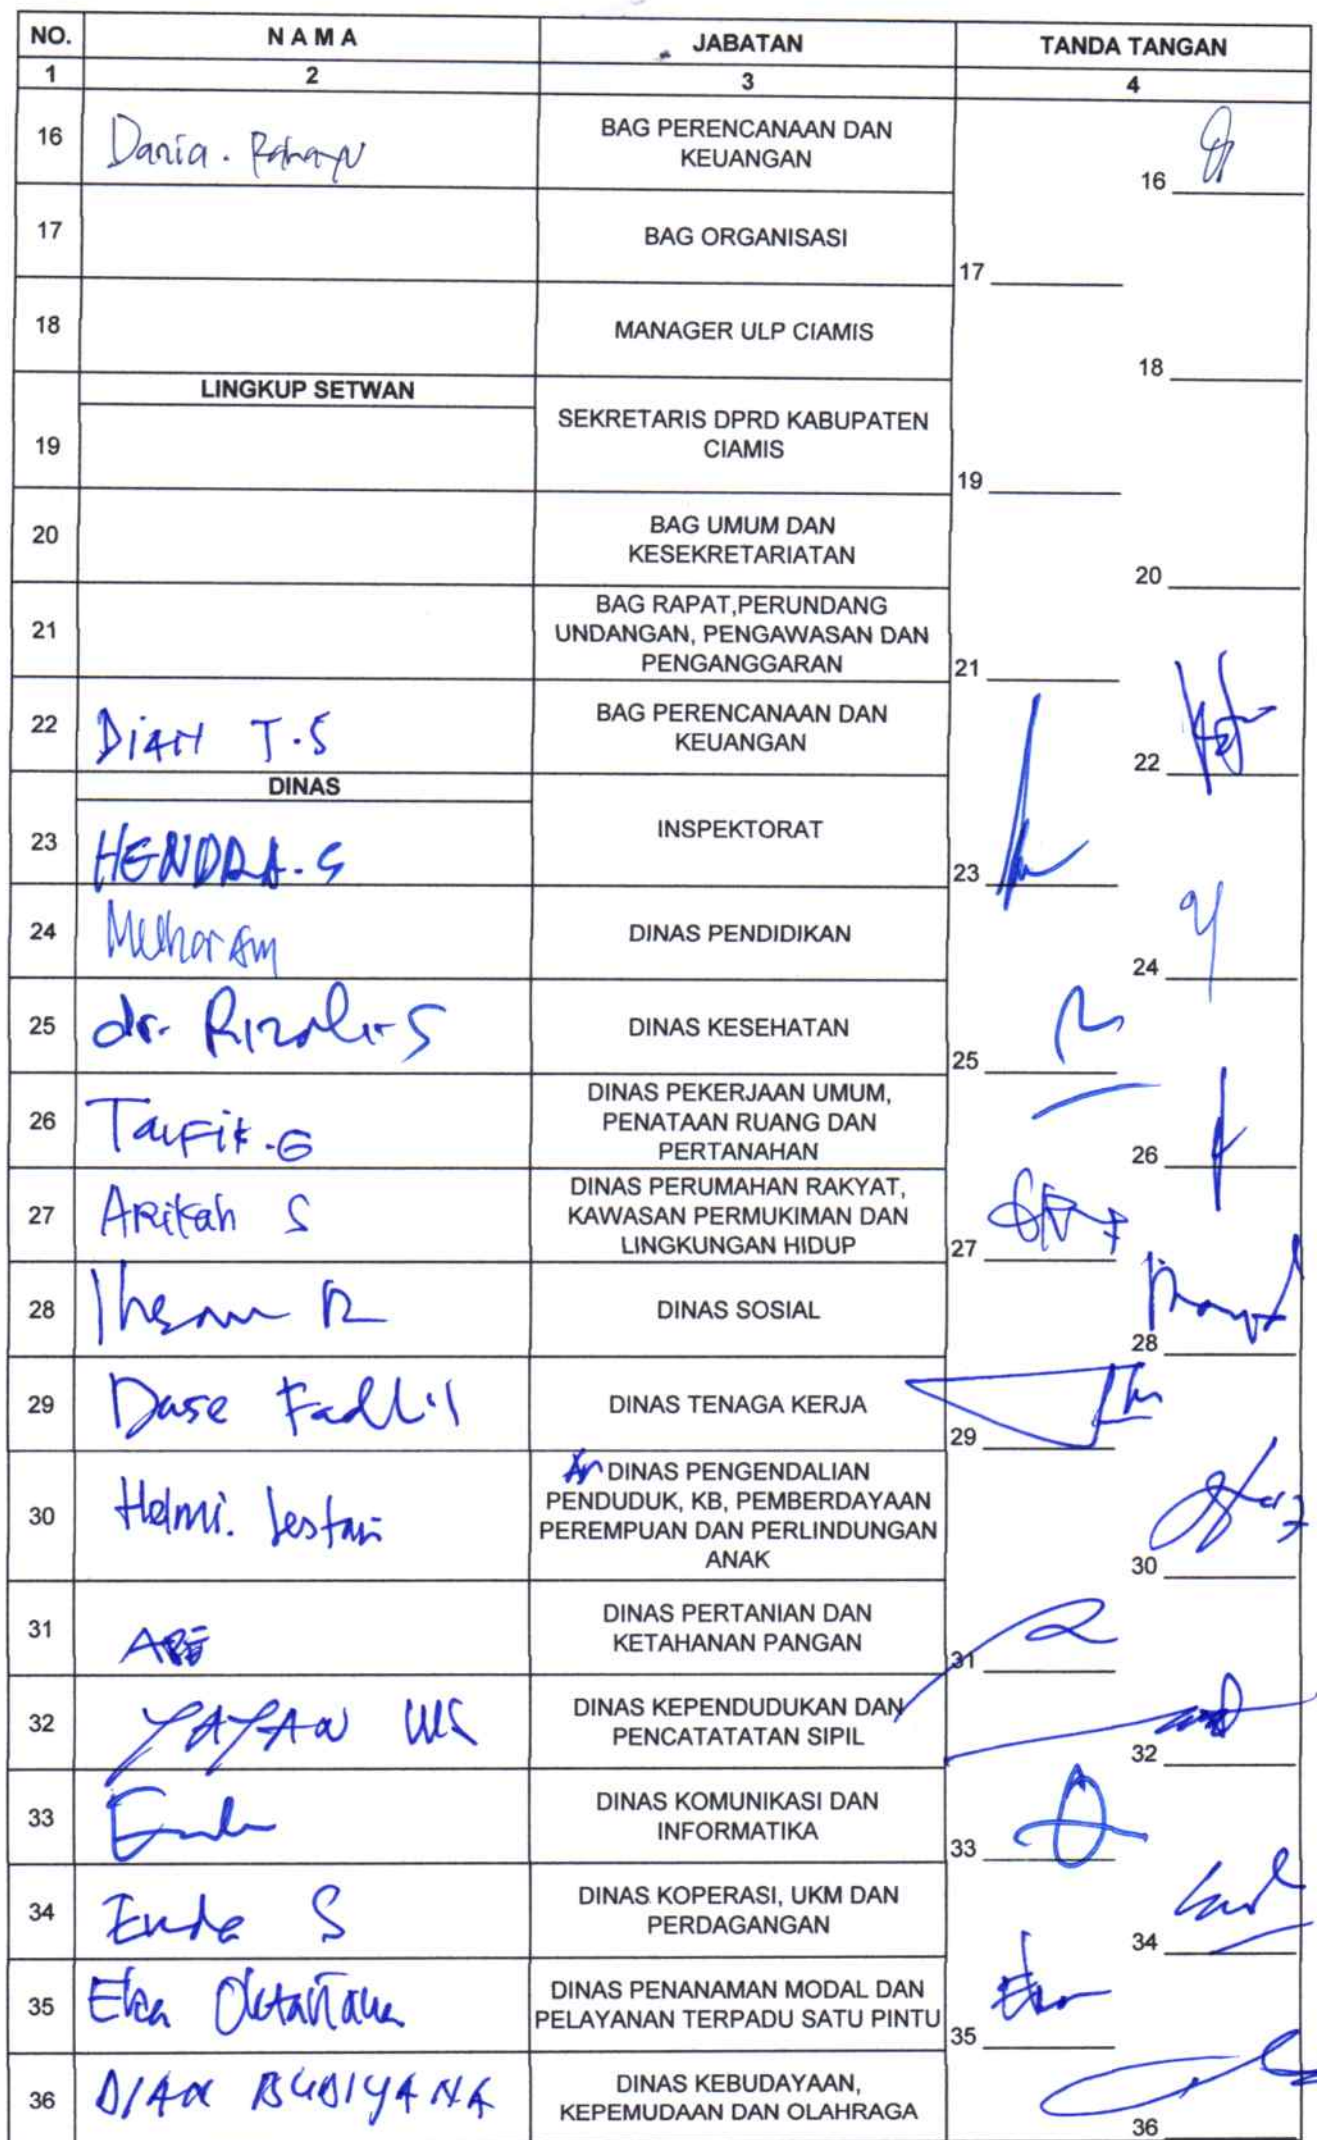 NO. NAMA JABATAN TANDA TANGAN
1 2 3 4
16 Dania. BAG PERENCANAAN DAN
KEUANGAN
16
17 BAG ORGANISASI
17
18 MANAGER ULP CIAMIS
18
LINGKUP SETWAN
19 SEKRETARIS DPRD KABUPATEN
CIAMIS
19
20 BAG UMUM DAN
KESEKRETARIATAN
20
21 BAG RAPAT,PERUNDANG
UNDANGAN, PENGAWASAN DAN
PENGANGGARAN
21
22 DiAN T.S BAG PERENCANAAN DAN
KEUANGAN
22
DINAS
23 HENDRA.S INSPEKTORAT
23
24 Muharam DINAS PENDIDIKAN
24
25 dr. Rizali.S DINAS KESEHATAN
25
26 Taufik.G DINAS PEKERJAAN UMUM,
PENATAAN RUANG DAN
PERTANAHAN
26
27 ARikah S DINAS PERUMAHAN RAKYAT,
KAWASAN PERMUKIMAN DAN
LINGKUNGAN HIDUP
27
28 Ihsan R DINAS SOSIAL
28
29 Dase Fadlil DINAS TENAGA KERJA
29
30 Helmi. Lestari DINAS PENGENDALIAN
PENDUDUK, KB, PEMBERDAYAAN
PEREMPUAN DAN PERLINDUNGAN
ANAK
30
31 DINAS PERTANIAN DAN
KETAHANAN PANGAN
31
32 YAYAN DINAS KEPENDUDUKAN DAN
PENCATATATAN SIPIL
32
33 DINAS KOMUNIKASI DAN
INFORMATIKA
33
34 Enda S DINAS KOPERASI, UKM DAN
PERDAGANGAN
34
35 Eka Oktaviana DINAS PENANAMAN MODAL DAN
PELAYANAN TERPADU SATU PINTU
35
36 DIAN BUDIYANA DINAS KEBUDAYAAN,
KEPEMUDAAN DAN OLAHRAGA
36